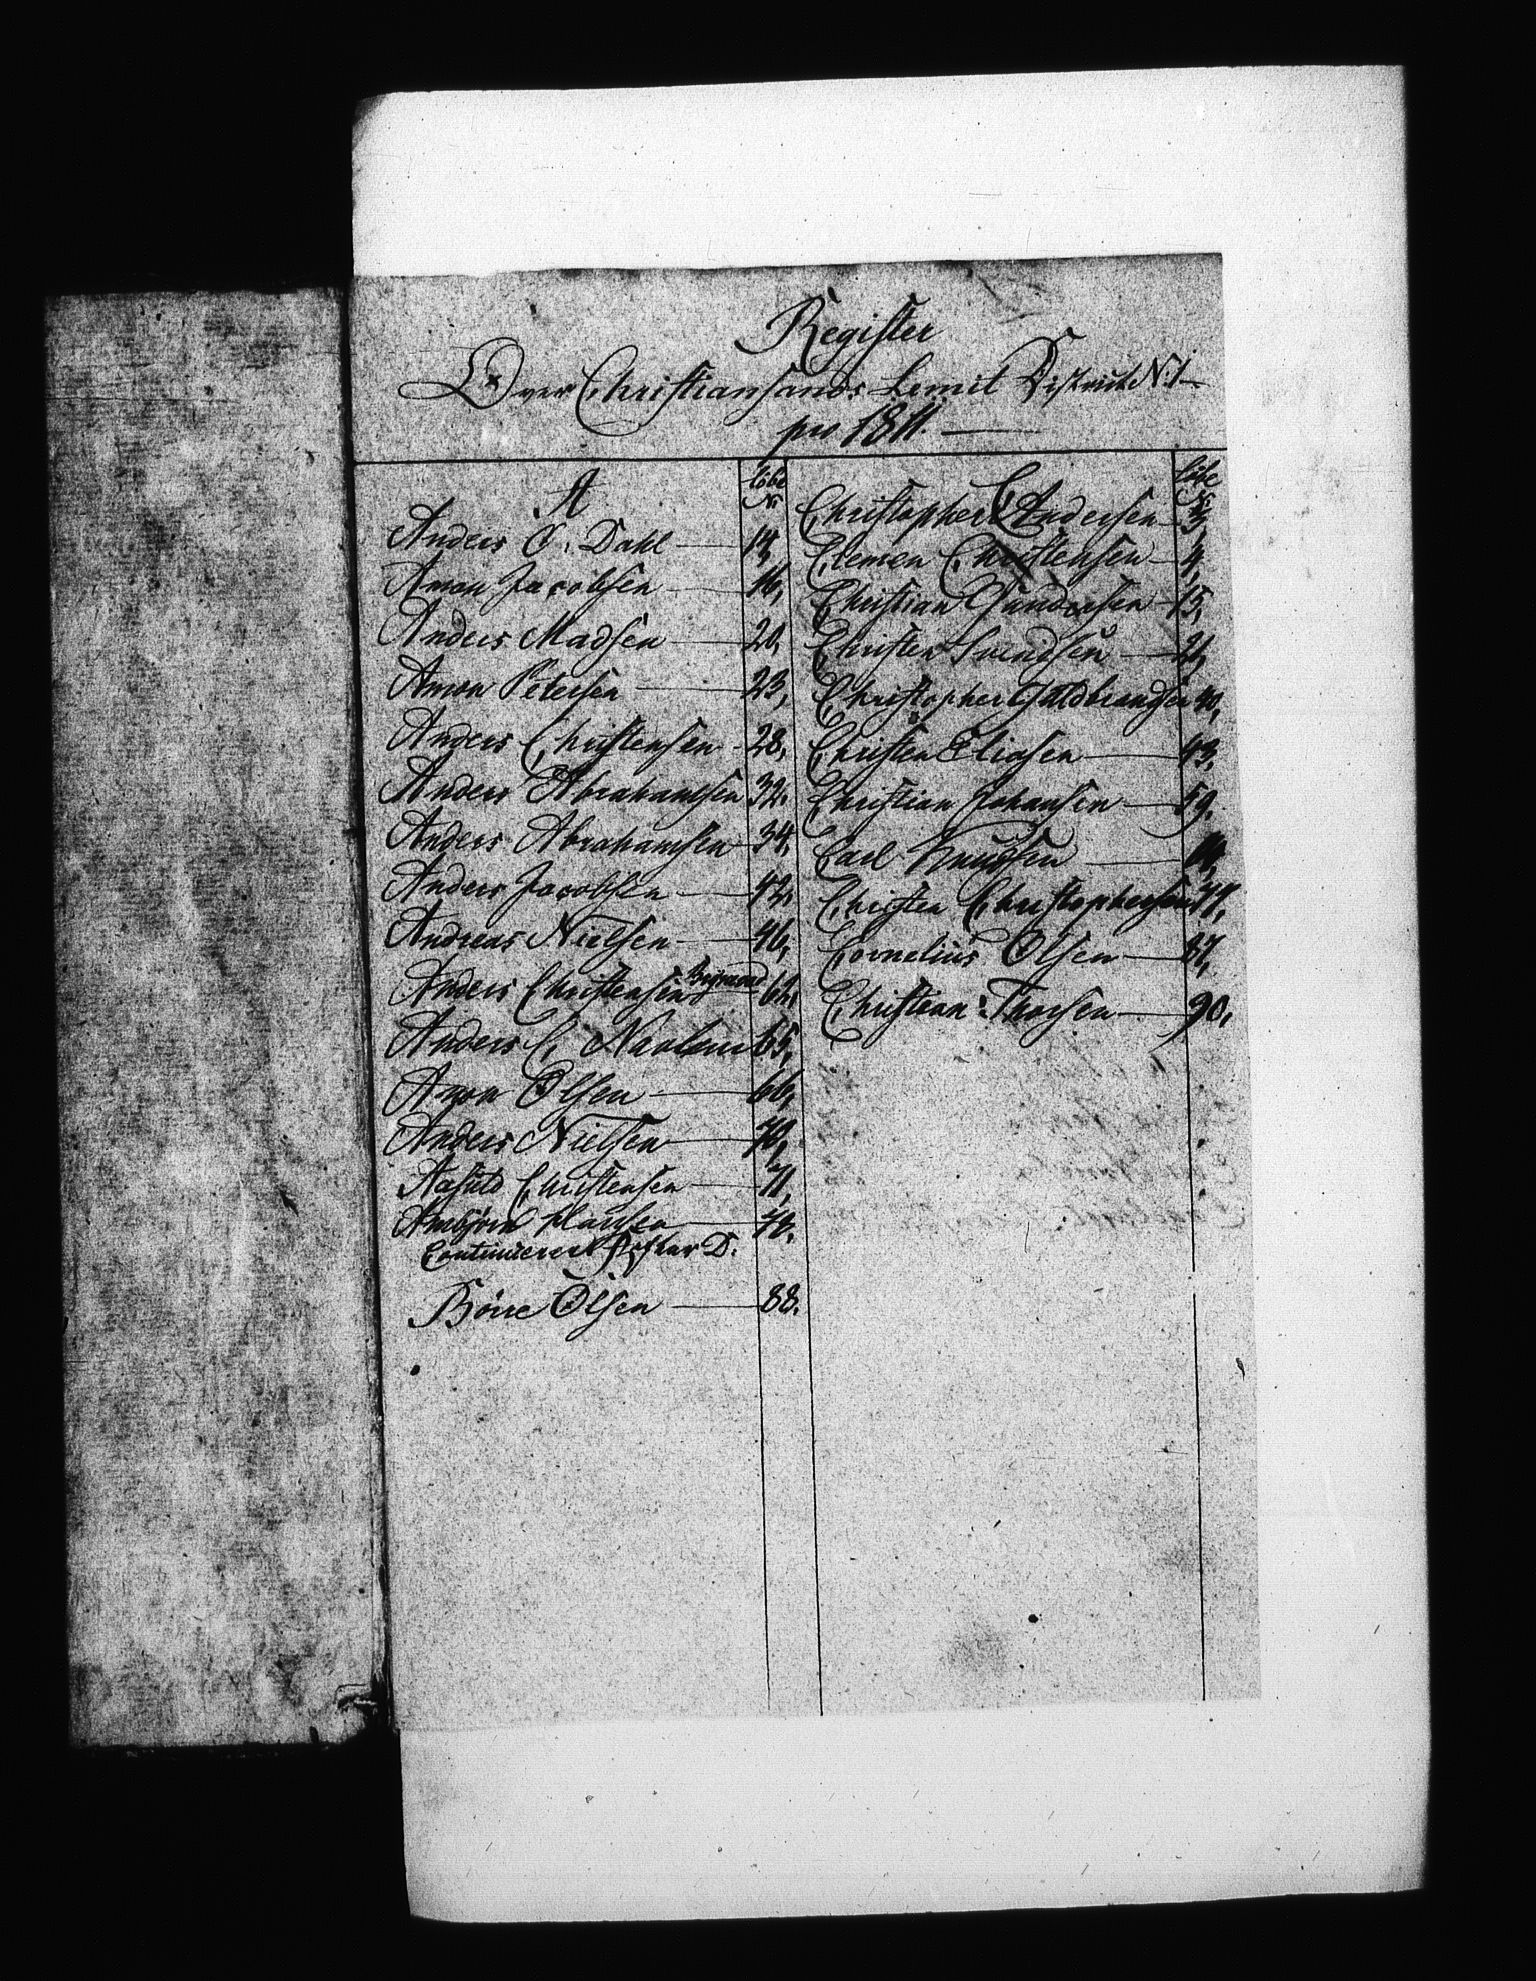 Register
Over Christiansands Lemit District N: 1
pro 1811.
A
Löbe
N:
Anders O. Dahl 14,
Amon Jacobsen 16,
Anders Madsen 20,
Amon Petersen 23,
Anders Christensen 28,
Anders Abrahamsen 32.
Anders Abrahamsen 34,
Anders Jacobsen 42.
Andreas Nielsen 46,
Anders Christensen 62.
Anders C. 65,
Amon Olsen 66,
Anders Nielsen 70,
Christensen 71,
Ambjörn 78.
Continueres D.
Börre Olsen 88.
C
Löbe
N:
Christopher Andersen 3,
Clemen Christensen 4,
Christian Gundersen 15,
Christen Svendsen 21,
Christopher Guldbrandsen 40,
Christen Eliasen 43.
Christian Johansen 59.
Carl Knudsen
Christen Christophersen 77,
Cornelius Olsen 87,
Christian Thorsen 90,